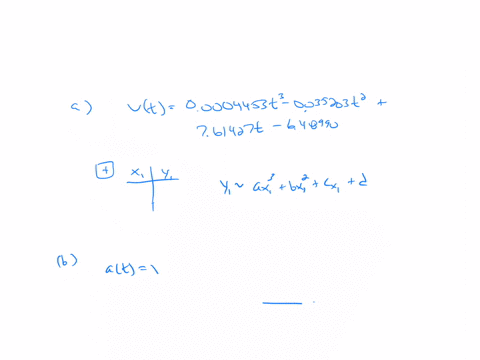 a) v(t) = 0.0004453t³ - 0.035203t² +
7.61427t - 6.48990
+ x₁ y₁ y₁ ~ ax₁³ + bx₁² + cx₁ + d
(b) a(t) =